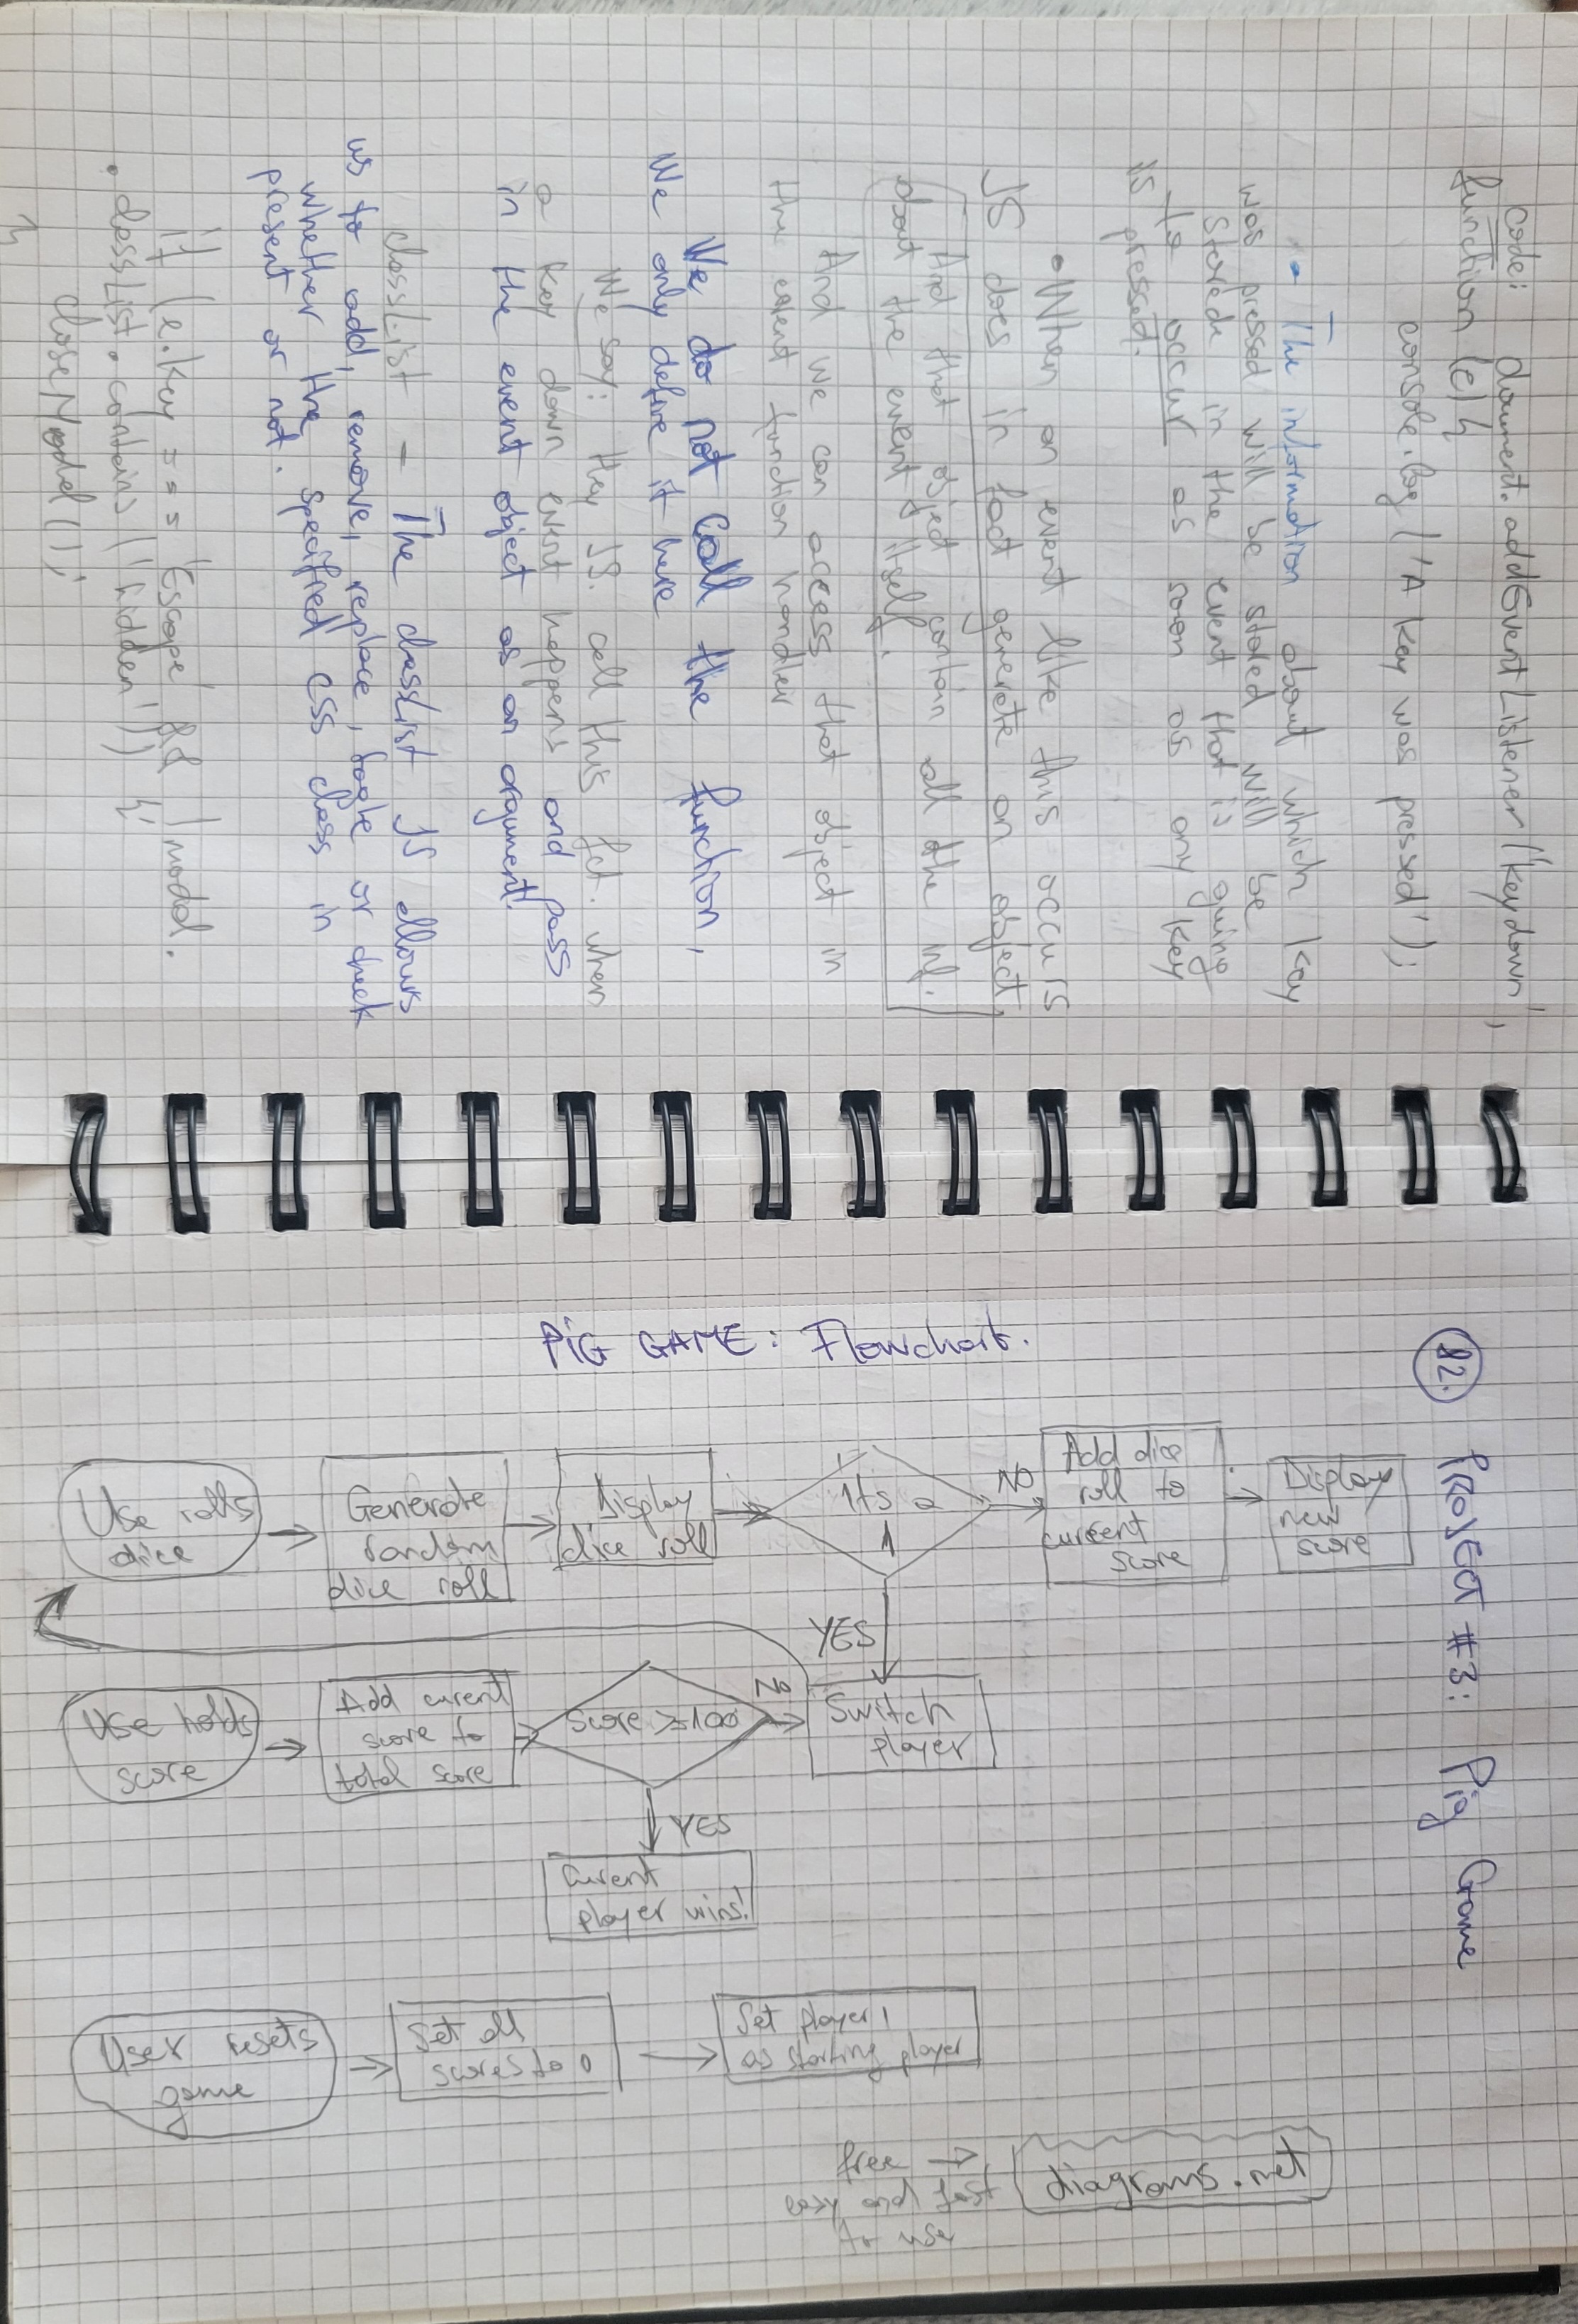 Code: document.addEventListener('keydown',
function (e) {
console.log('A key was pressed');
• The information about which key
was pressed will be stored will be
storede in the event that is going
to occur as soon as any key
is pressed.
• When an event like this occurs
JS does in fact generate an object
And that object contain all the inf.
about the event itself.
And we can access that object in
the event function handler
We do not call the function,
We only define it here
We say: Hey JS. call this fct. when
a key down event happens and pass
in the event object as an argument!
classList - The classList JS allows
us to add, remove, replace, togle or check
whether the specified CSS class in
present or not.
if (e.key === 'Escape' && !modal.
• classList.contains('hidden')) {
closeModal();
}
82. PROJECT #3: Pig Game
PIG GAME: Flowchart.
Use rolls
dice
Generate
random
dice roll
Display
dice roll
Its a
1
NO
Add dice
roll to
current
score
Display
new
score
YES
Use holds
score
Add curent
score to
total score
Score ≥100
No
Switch
player
YES
Curent
player wins!
User resets
game
Set all
scores to 0
Set player 1
as starting player
free → diagrams.net
easy and fast
to use